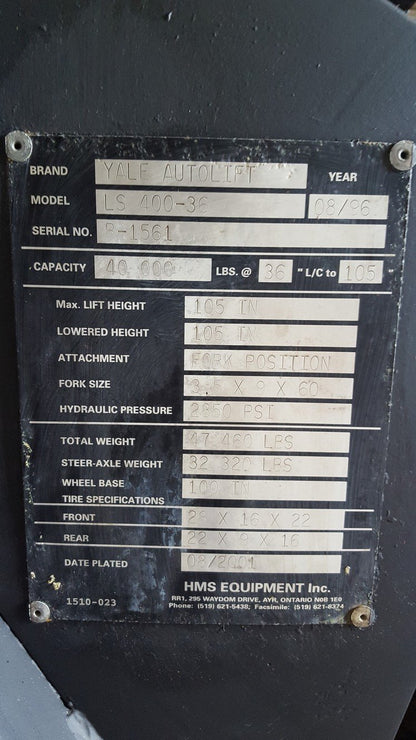 BRAND YALE AUTOLIFT YEAR
MODEL LS 400-36 08/96
SERIAL NO. B-1561
CAPACITY 40 000 LBS. @ 36 " L/C to 105 "
Max. LIFT HEIGHT 105 IN
LOWERED HEIGHT 105 IN
ATTACHMENT FORK POSITION
FORK SIZE 3.5 X 9 X 60
HYDRAULIC PRESSURE 2850 PSI
TOTAL WEIGHT 47 460 LBS
STEER-AXLE WEIGHT 32 320 LBS
WHEEL BASE 100 IN
TIRE SPECIFICATIONS
FRONT 28 X 16 X 22
REAR 22 X 9 X 16
DATE PLATED 08/2001
HMS EQUIPMENT Inc.
1510-023 RR1, 295 WAYDOM DRIVE, AYR, ONTARIO N0B 1E0
Phone: (519) 621-5438; Facsimile: (519) 621-8374